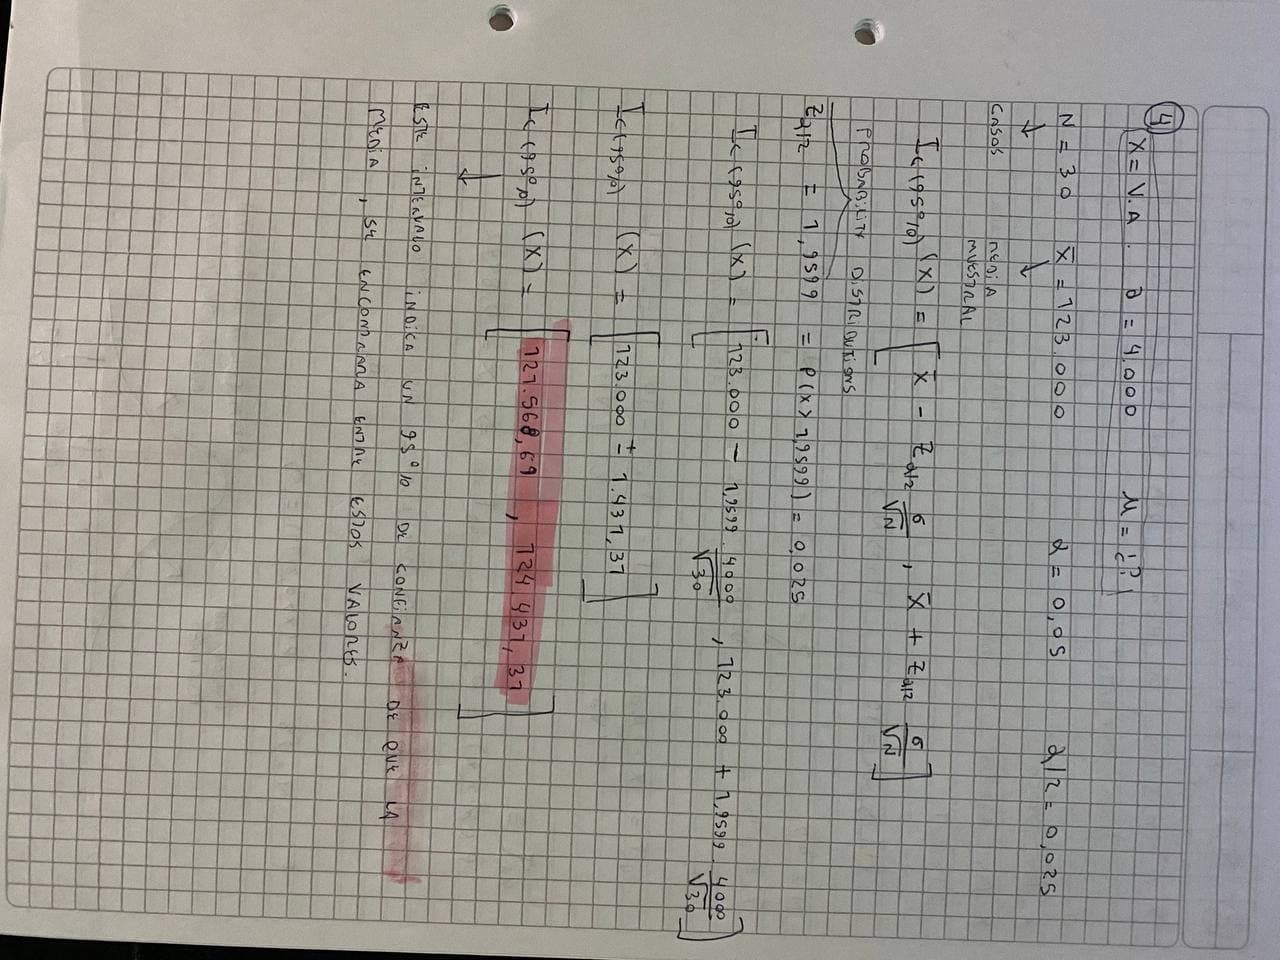 ④ X = V.A. ∂ = 4.000 M = ¿?
N = 30 X̄ = 123.000 α = 0,05 α/2 = 0,025
↓ ↓
CASOS MEDIA
MUESTRAL
Ic (95%) (X) = [X̄ - Zα/2 σ/√N , X̄ + Zα/2 σ/√N]
PROBABILITY DISTRIBUTIONS
Zα/2 = 1,9599 = P(X > 1,9599) = 0,025
Ic (95%) (X) = [123.000 - 1,9599 · 4000/√30 , 123.000 + 1,9599 · 4000/√30]
Ic (95%) (X) = [123.000 ± 1.431,37]
Ic (95%) (X) = [121.568,69 , 124 431,31]
↓
ESTE INTERVALO INDICA UN 95% DE CONFIANZA DE QUE LA
MEDIA, SE ENCONTRARA ENTRE ESTOS VALORES.